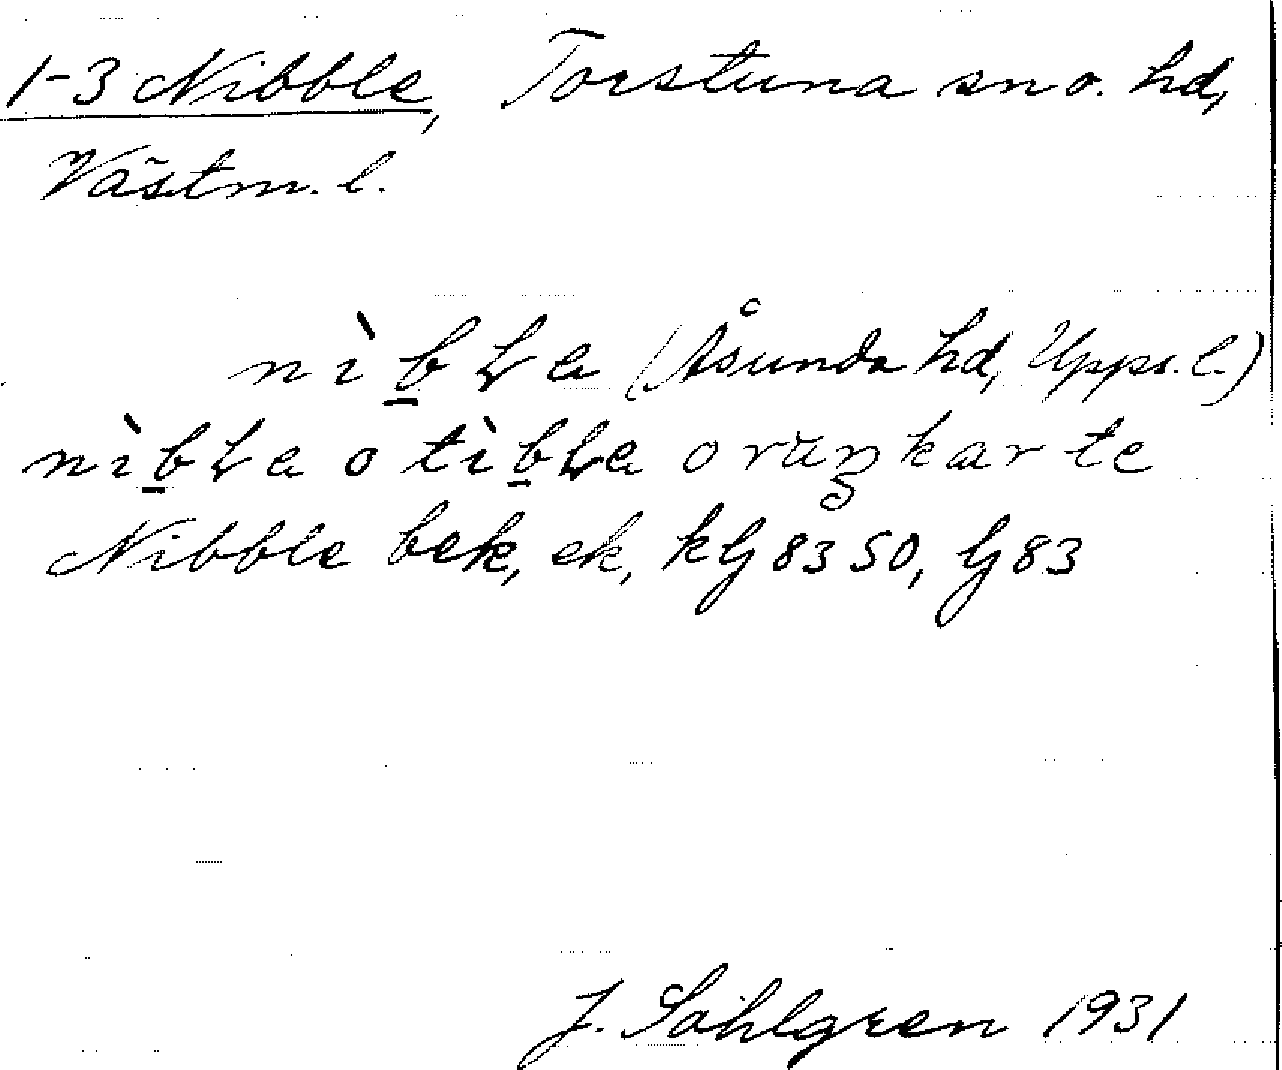 1-3 Nibble, Torstuna sn o. hd,
Västm. l.
nìbLa (Åsunda hd, Upps. l.)
nìbLa o tìbLa o ruŋkar te
Nibble bek, ek, kG 83 50, G 83
J. Sahlgren 1931